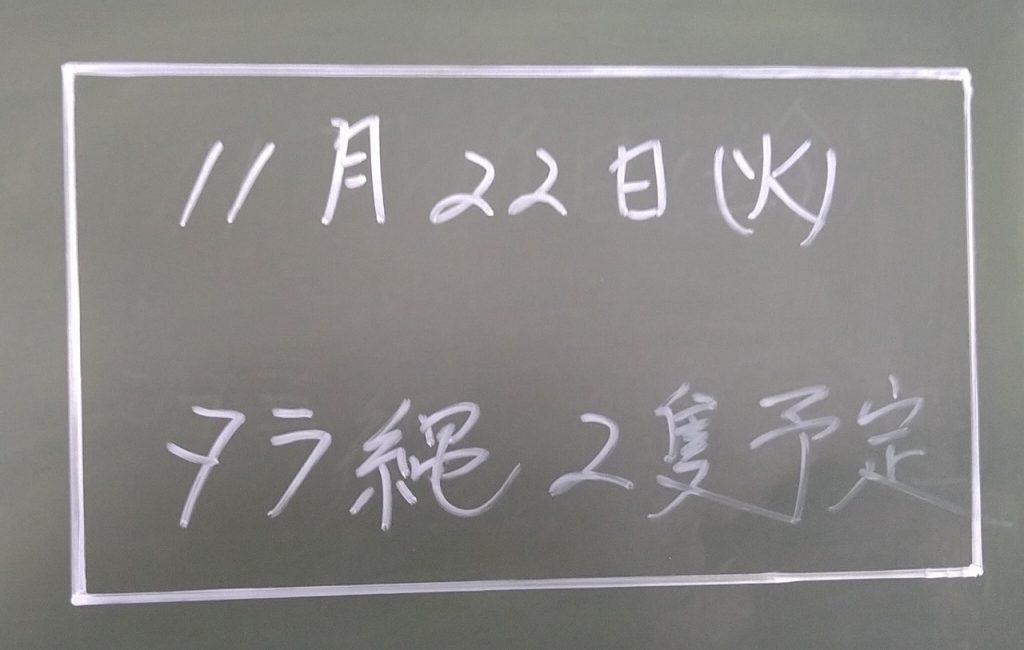 11月22日(火)
タラ縄 2隻予定